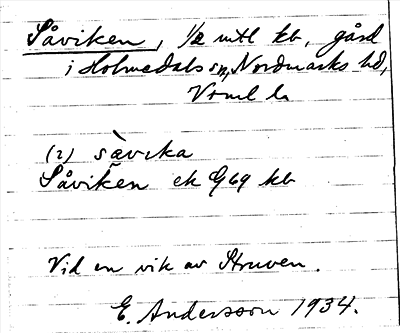 Såviken, 1/2 mtl kb, gård
i Holmedals sn, Nordmarks hd,
Vrml l.
(2) sàvika
Såviken ek G69 kb
Vid en vik av Struven.
E. Andersson 1934.